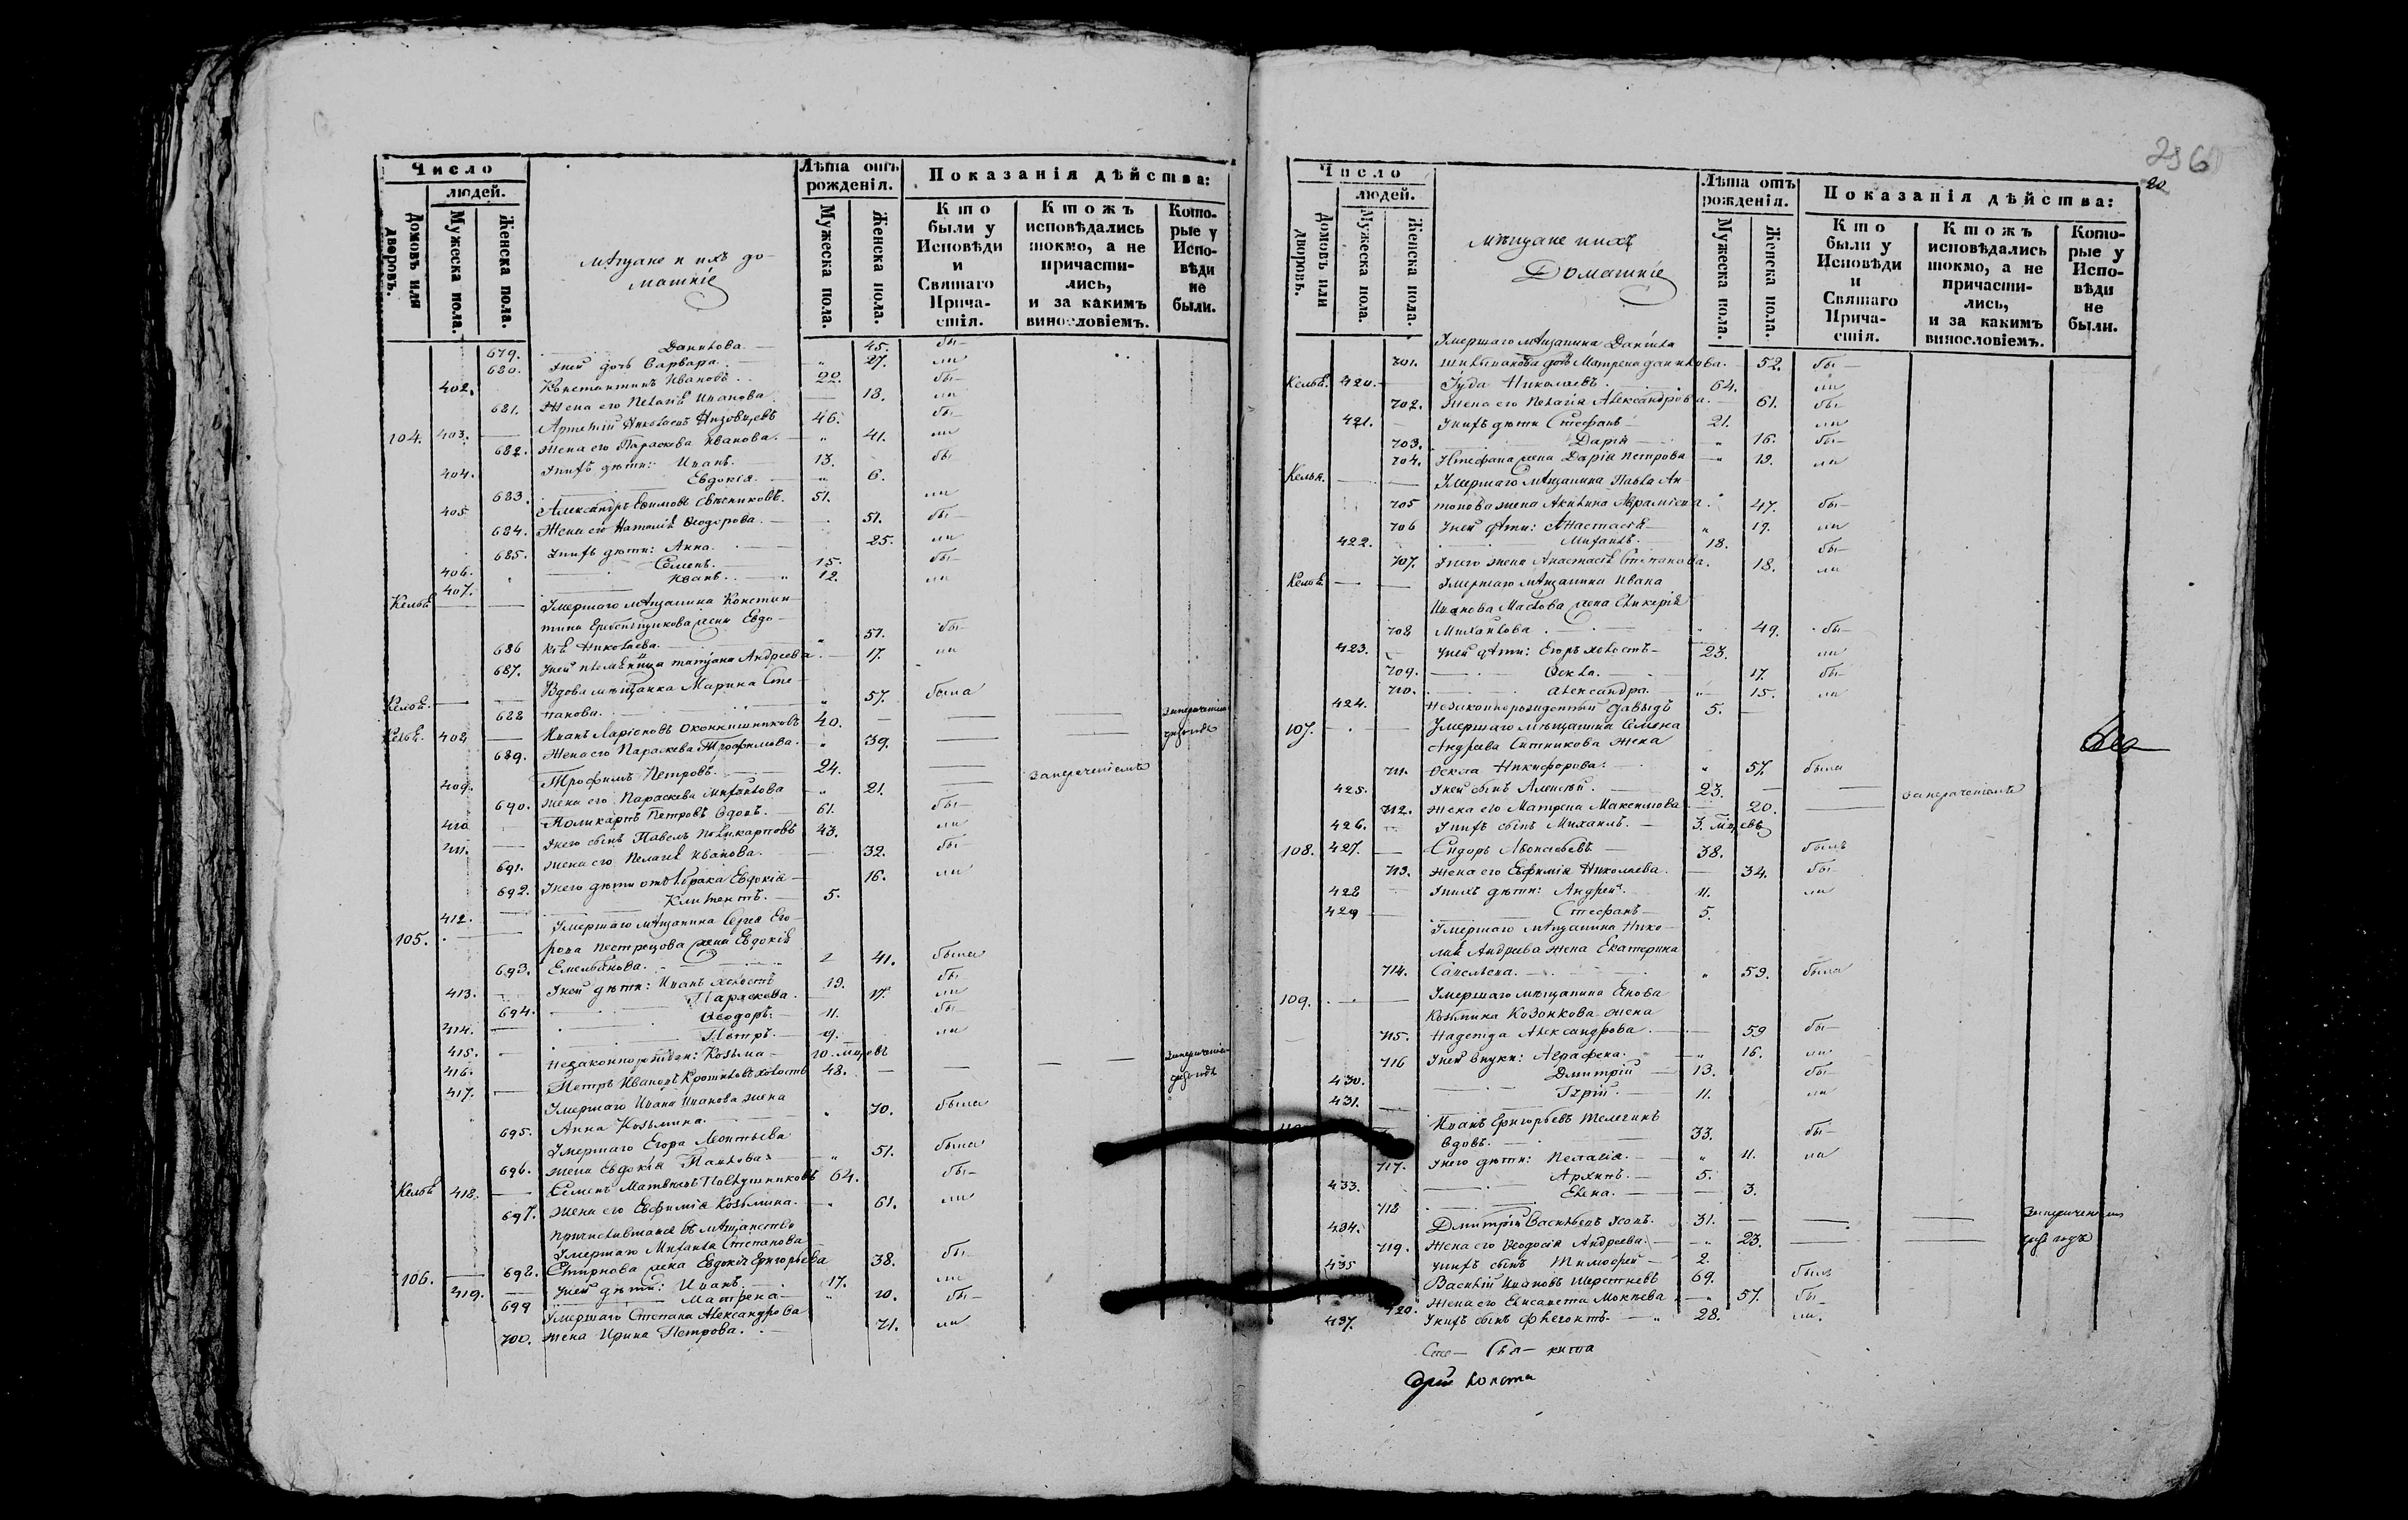 Число
людей.
Домовъ или дворовъ.
Мужеска пола.
Женска пола.
Мѣщане и ихъ до-
машніе
Лѣта отъ рожденія.
Мужеска пола.
Женска пола.
Показанія дѣйства:
Кто были у Исповѣди и Святаго Прича-стія.
Ктожъ исповѣдались токмо, а не причасти-лись, и за какимъ винословіемъ.
Кото-рые у Испо-вѣди не были.
679. Данилова. 45. бы-
680. Уней дочь Варвара. 27. ли
402. Константинъ Ивановъ. 22. бы-
681. Жена его Пелагія Иванова. 18. ли
104. 403. Артемій Николаевъ 46. бы-
682. Жена его Параскева Иванова. 41. ли
404. Унихъ дѣти: Иванъ. 13. бы
683. Евдокія. 6.
405 Александръ Ефимовъ Свѣшниковъ. 51. ли
684. Жена его Наталія Ѳеодорова. 51. бы-
685. Унихъ дѣти: Анна. 25. ли
406. Семенъ. 15. бы-
407. Иванъ. 12. ли
Умершаго мѣщанина Констан-
тина жена Евдо-
686 кія Николаева. 51. бы-
687. Уней племянница татіана Андреева 17. ли
Вдова мѣщанка Марина Сте-
688 панова. 57. была
408 Иванъ Ларіоновъ Оконнишниковъ 40.
689. Жена его Параскева Трофимова. 39.
409. Трофимъ Петровъ. 24.
690. Жена его Параскева Михайлова 21.
410 Поликарпъ Петровъ вдовъ. 61. бы-
411. Унего сынъ Павелъ Поликарповъ 43. ли
691. Жена его Пелагія Иванова. 32. бы-
692. Унего дѣти отъ 1 брака Евдокія 16. ли
412. Климентъ. 5.
105. Умершаго мѣщанина Сергія Его-
рова Пестрецова жена Евдокія
693. Емельянова. 41. была
413. Уней дѣти: Иванъ холостъ 19. бы
694. Параскева. 17. ли
414. Ѳеодоръ. 11. бы
415. Петръ. 9. ли
416. Незаконнорожден: Козьма 10. мцовъ
417. Петръ Ивановъ холостъ 48.
Умершаго Ивана Иванова жена
695. Анна Козьмина. 70. была
Умершаго Егора Леонтьева
696. жена Евдокія Павлова 51. была
418. Семенъ Матвѣевъ 64. бы-
697. Жена его Евфимія Козьмина. 61. ли
Причислившаяся въ мѣщанство
Умершаго Михаила Степанова
106. 698. Смирнова жена Евдокія Григорьева 38. бы-
419. Уней дѣти: Иванъ. 17. ли
699 Матрена 10. бы-
Умершаго Степана Александрова
700. жена Ирина Петрова. 71. ли
20
Число
людей.
Домовъ или дворовъ.
Мужеска пола.
Женска пола.
Мѣщане и ихъ
Домашніе
Лѣта отъ рожденія.
Мужеска пола.
Женска пола.
Показанія дѣйства:
Кто были у Исповѣди и Святаго Прича-стія.
Ктожъ исповѣдались токмо, а не причасти-лись, и за какимъ винословіемъ.
Кото-рые у Испо-вѣди не были.
Умершаго мѣщанина Даніила
701. дочь Матрена данилова. 52. бы-
420. Іуда Николаевъ. 64. ли
702. Жена его Пелагія Александрова. 61. бы
421. Унихъ дѣти Стефанъ 21. ли
703. Дарія 16. бы-
704. Устефана жена Дарія Петрова 19. ли
Умершаго мѣщанина Павла Ан-
705 тонова жена Акилина Аврамieва. 47. бы-
706 Уней дѣти: Анастасія 19. ли
422. Михаилъ. 18. бы-
707. Унего жена Анастасія Степанова. 18. ли
Умершаго мѣщанина Ивана
Иванова Маслова жена Гликерія
708 Михайлова. 49. бы-
423. Уней дѣти: Егоръ холостъ 23. ли
709. Ѳекла. 17. бы
710. Александра. 15. ли
424. Незаконнорожденный Давыдъ 5.
107. Умершаго мѣщанина Семена
Андреева Ситникова жена
711. Ѳекла Никифорова. 57. была
425. Уней сынъ Алексѣй. 23.
712. Жена его Матрена Максимова 20.
426. Унихъ сынъ Михаилъ. 3. мцовъ
108. 427. Сидоръ 38. былъ
713. Жена его Евфимія Николаева. 34. бы-
428 Унихъ дѣти: Андрей. 11. ли
429 Стефанъ 5.
Умершаго мѣщанина Нико-
лая Андреева жена Екатерина
714. Савельева. 59. была
109. Умершаго мѣщанина
Козьмина жена
715. Надежда Александрова. 59 бы-
716 Уней внуки: Аграфена. 16. ли
430. Димитрій 13. бы-
431. Гурій. 11. ли
Иванъ Григорьевъ Телегинъ
вдовъ. 33. бы-
717. Унего дѣти: Пелагія. 11. ли
433. Архипъ. 5.
718 Елена. 3.
434. Дмитрій Васильевъ 31.
719. Жена его Ѳеодосія Андреева. 23.
435 Унихъ сынъ Тимофей 2.
Василій Ивановъ Шерстневъ 69. былъ
720. Жена его Елисавета Мокѣева 57. бы-
437. Унихъ сынъ Флегонтъ. 28. ли.